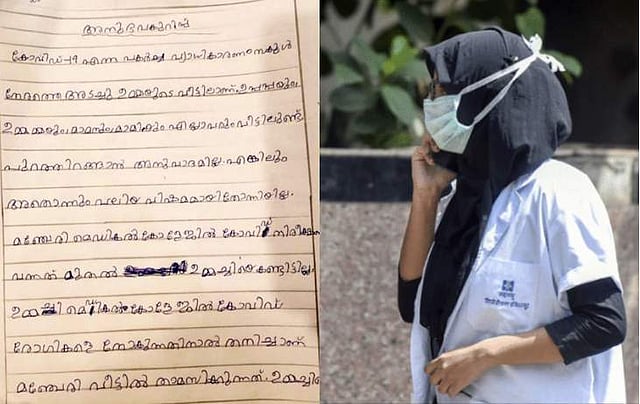 അനുഭവകുറിപ്പ്
കോവിഡ്-19 എന്ന പകർച്ച വ്യാധികാരണം സ്കൂൾ
നേരത്തെ അടച്ചു ഉമ്മയുടെ വീട്ടിലാണ്.
ഉമ്മമ്മയും മാമനും എല്ലാവരും വീട്ടിലുണ്ട്
പുറത്തിറങ്ങാൻ അനുവാദമില്ല. എങ്കിലും
അതൊന്നും വലിയ വിഷമമായിതോന്നിയില്ല.
മഞ്ചേരി മെഡികൽ കോളേജിൽ കോവിഡ്
വന്നത് മുതൽ ഉമ്മച്ചിയെ കണ്ടിട്ടില്ല.
ഉമ്മച്ചി മെഡികൽ കോളേജിൽ കോവിഡ്
രോഗികളെ നോകുന്നതിനാൽ തനിച്ചാണ്
മഞ്ചേരി വീട്ടിൽ താമസിക്കുന്നത്.